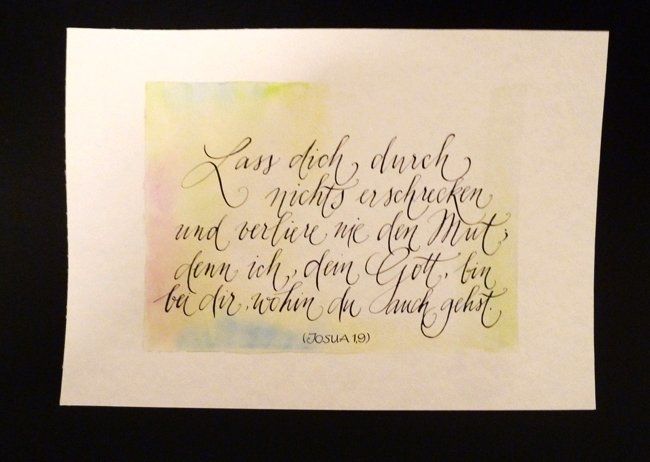 Lass dich durch
nichts erschrecken
und verliere nie den Mut;
denn ich, dein Gott, bin
bei dir, wohin du auch gehst.
(JOSUA 1,9)